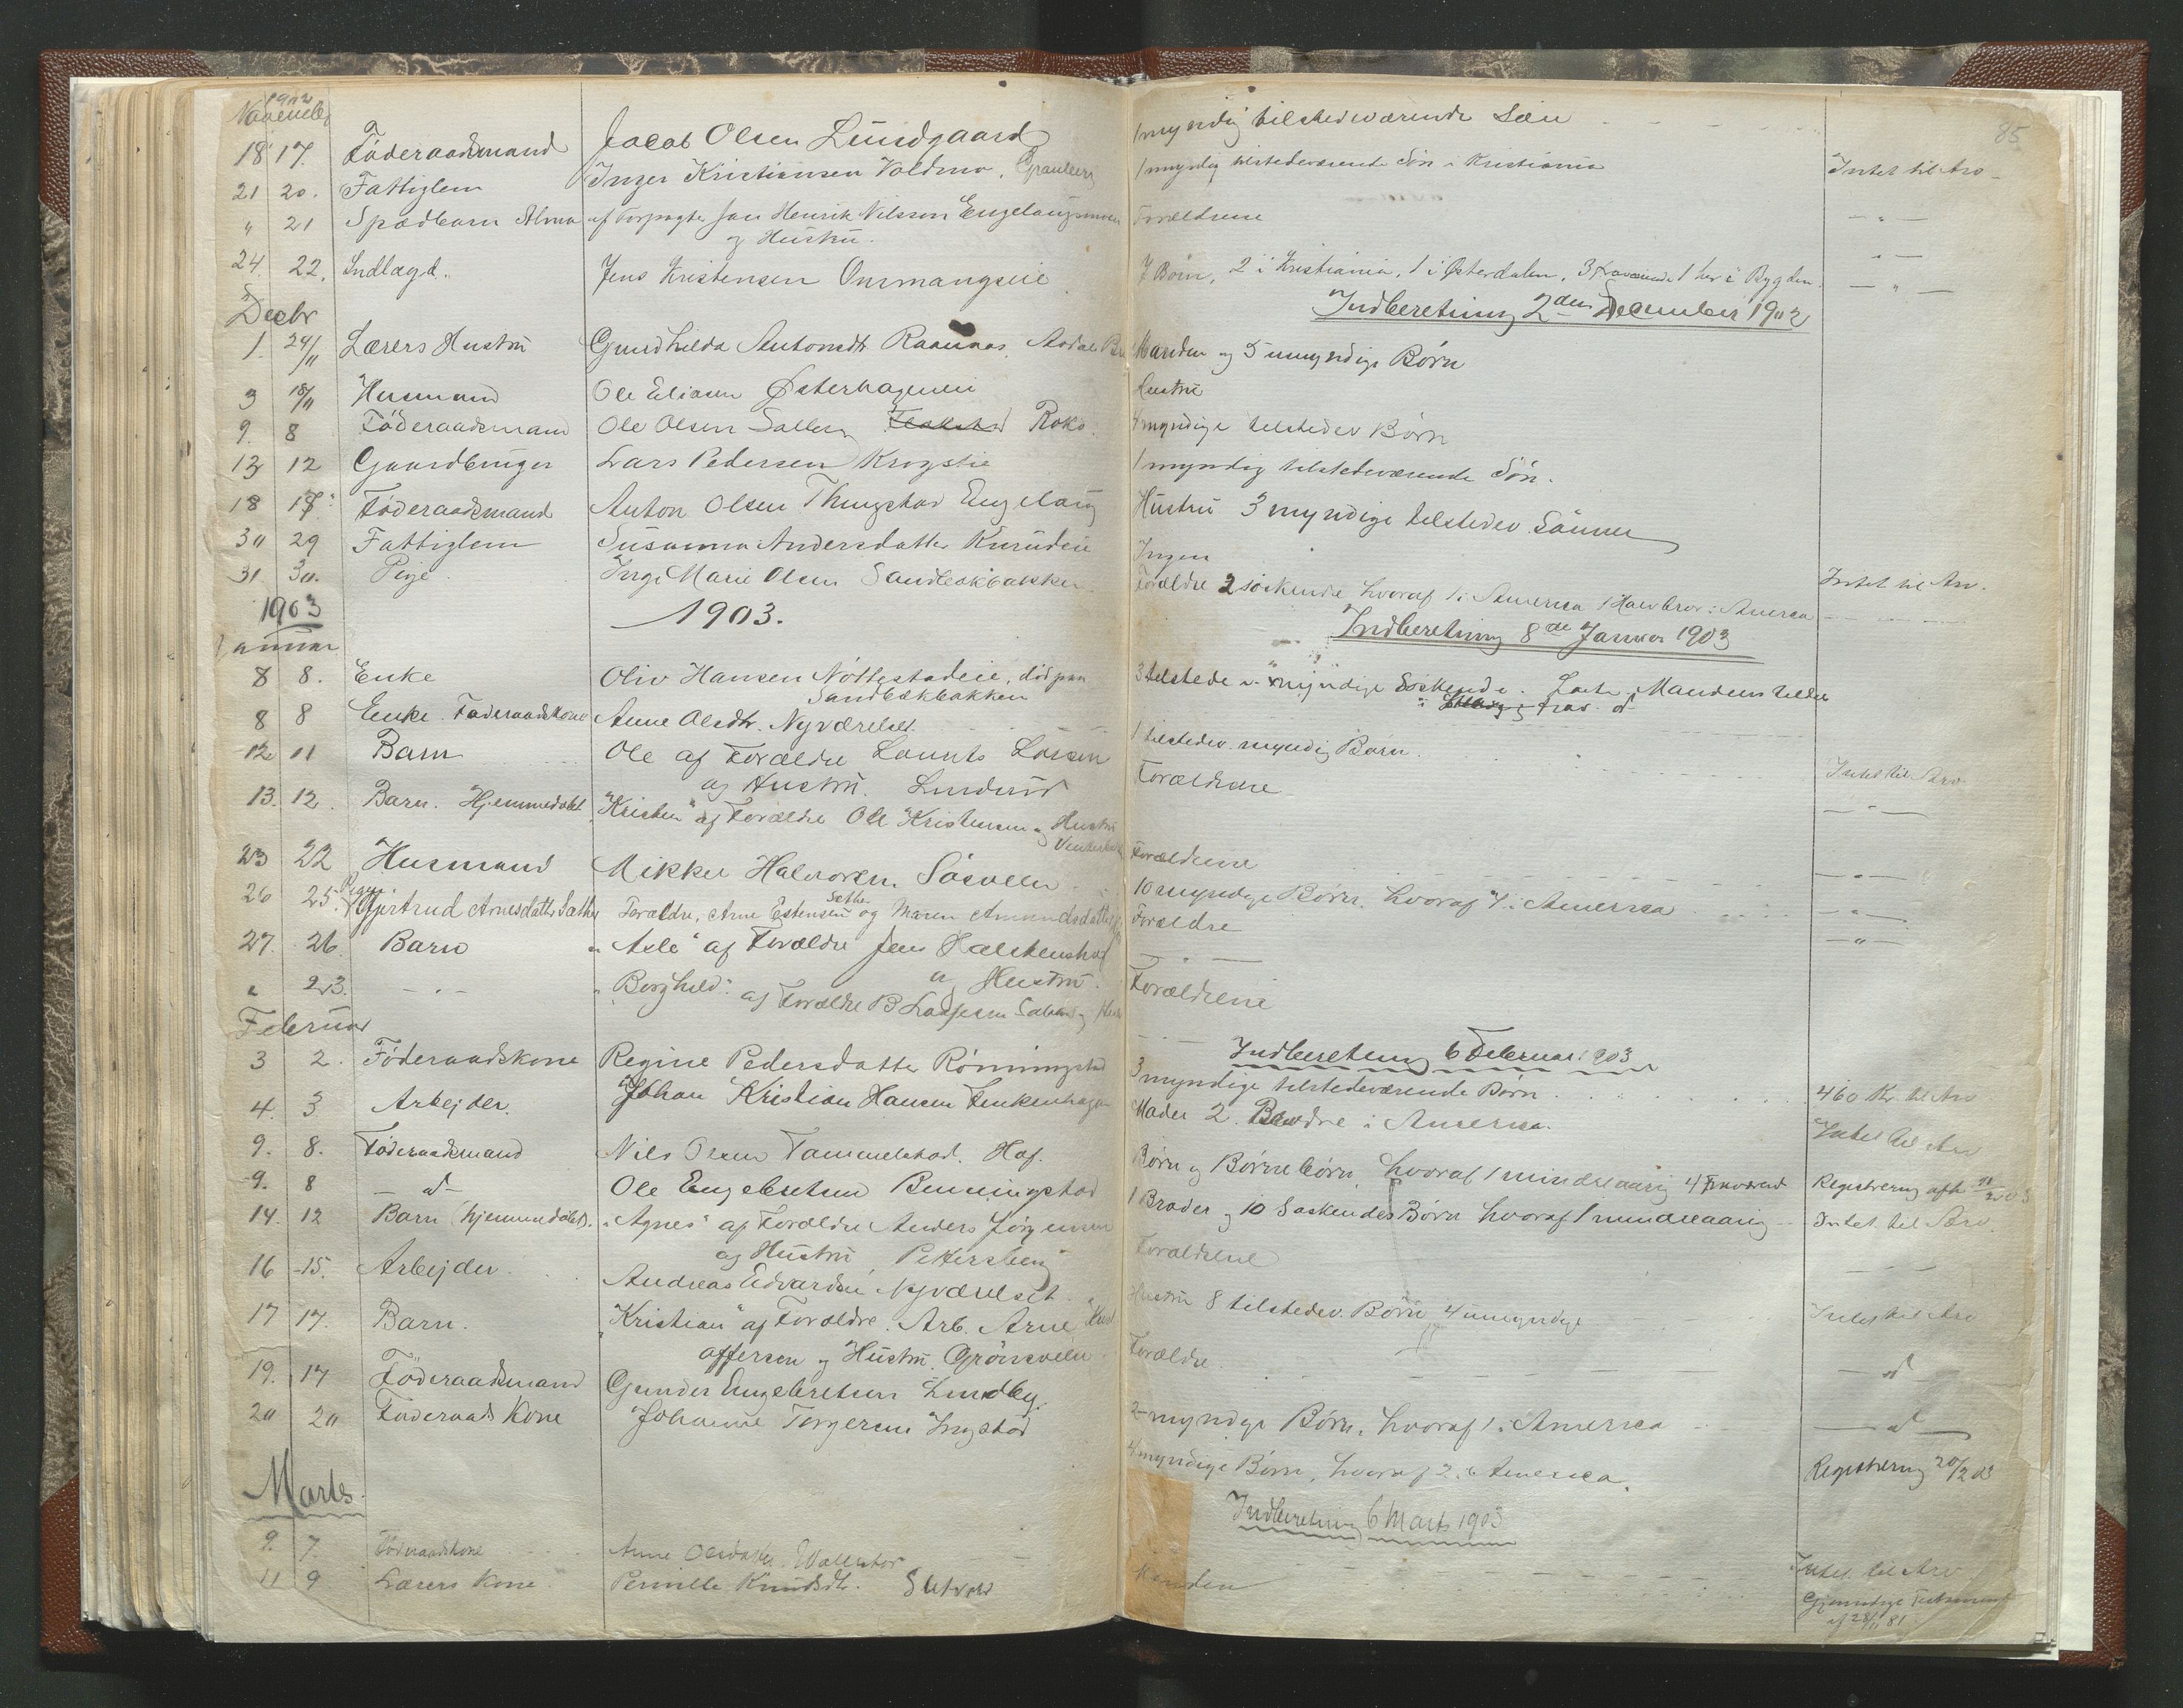 1902
November
18 17. Föderaadsmand Jacob Olsen Lundgaard
21 20. Fattiglem Inger Kristiansen Voldmo, Granberg
" 21 Spædbarn Alma af Forpagter Jan Henrik Nilsson Engelaugsmoen
og Hustru.
24. 22. Indlagd. Jens Kristensen Ommangseie
Decbr
1. 24/11 Lærers Hustru Gundhilda Antonsdtr Raaunas, Aadals Br
3 18/11 Husmand Ole Eliasen Østerhageneie
9. 8 Föderaadsmand Ole Olsen Roko.
13 12 Gaardbruger Lars Pedersen Krogstie
18 17. Föderaadsmand Anton Olsen Thingstad Engelaug
30 29 Fattiglem Susanna Andersdatter Kurudeie
31 30. Pige. Inga Marie Olsen Sandbækbakken
1903 1903.
Januar
8 8. Enke Oliv Hansen Nöttestadeie, död paa
Sandbækbakken
8 8 Enke. Föderaadskone Anne Olsdtr. Nyværelset
12 11 Barn Ole af Forældre Launts Larsen
og Hustru. Linderud
13. 12. Barn. Hjemmedøbt "Kristen" af Forældre Ole Kristensen og Hustru
23 22 Husmand Mikkel Halvorsen. Sösveen
26 25. Pigen Gjertrud Arnesdatter Sæther Forældre, Arne Estensen Sæther og Maren Amundsdatter
27. 26. Barn "Asle" af Forældre Jens Halstenshof
og Hustru.
" 23. — " — "Borghild" af Forældre B Larsen
Februar
3 2. Föderaadskone Regine Pedersdatter Rönningstad
4. 3 Arbejder. Johan Kristian Hansen Finkenhagen
9. 8. Föderaadsmand Nils Olsen Tommelstad. Hof.
9. 8 — d — Ole Engebretsen Benningstad
14. 12 Barn (hjemmedöbt). "Agnes" af Forældre Anders Jörgensen
og Hustru, Pettersberg
16 15. Arbejder. Andreas Edvardsen Nyværelset
17 17. Barn. "Kristian" af Forældre. Arb. Arne Krist
offersen og Hustru. Grönsveen
19. 17 Föderaadsmand Gunder Engebretsen Lundby.
20 20 Föderaads Kone Johanne Torgersen Ingstad
Marts.
9. 7. Föderaadskone Anne Olsdatter
11 9 Lærers Kone. Pernille Knudsdtr.
85
1 myndig tilstedeværende Sön
1 myndig tilstedeværende Sön i Kristiania Intet til Arv
Forældrene — " —
— " —
7 Börn, 2 i Kristiania, 1 i Østerdalen, 3 fraværende 1 her i Bygden. — " —
Indberetning 2den December 1902
Manden og 5 umyndige Börn
Hustru
4 myndige tilstedev Börn
1 myndig tilstedeværende Sön.
Hustru 3 myndige tilstedev. Sönner
Ingen
Forældre 2 söskende hvoraf 1 i America 1 Halvbror i America Intet til Arv.
Indberetning 8de Januar 1903
3 tilstedev. myndige Söskende.
1 tilstedev. myndig Barn.
Forældrene Intet til Arv.
— " —
Forældrene
10 myndige Börn, hvoraf 4 i America — " —
Forældre — " —
— " — — " —
Forældrene
Indberetning 6 Februar 1903
3 myndige tilstedeværende Börn 460 Kr. til Arv
Moder 2. Brødre i America. Intet til Arv
Börn og Börnebörn, hvoraf 1 mindreaarig 4 fraværend Registrering
1 Broder og 10 Söskendes Börn hvoraf 1 mindreaarig Intet til Arv.
Forældrene
Hustru 8 tilstedev. Börn, 4 umyndige Intet til Arv
Forældre. — d —
2 myndige Börn, hvoraf 1 i America — d —
4 myndige Börn, hvoraf 2 i America. Registrering 20/2 03
Indberetning 6 Marts 1903
Intet til Arv
Manden Gjensidige Testament